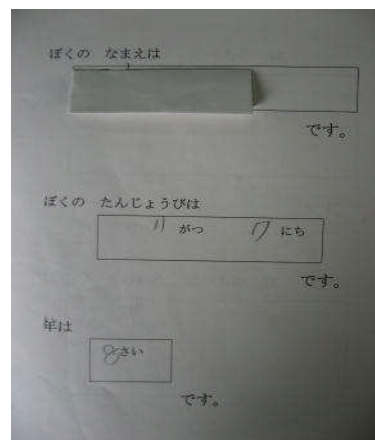 ぼくの なまえは
です。
ぼくの たんじょうびは
11 がつ 17 にち
です。
年は
8さい
です。